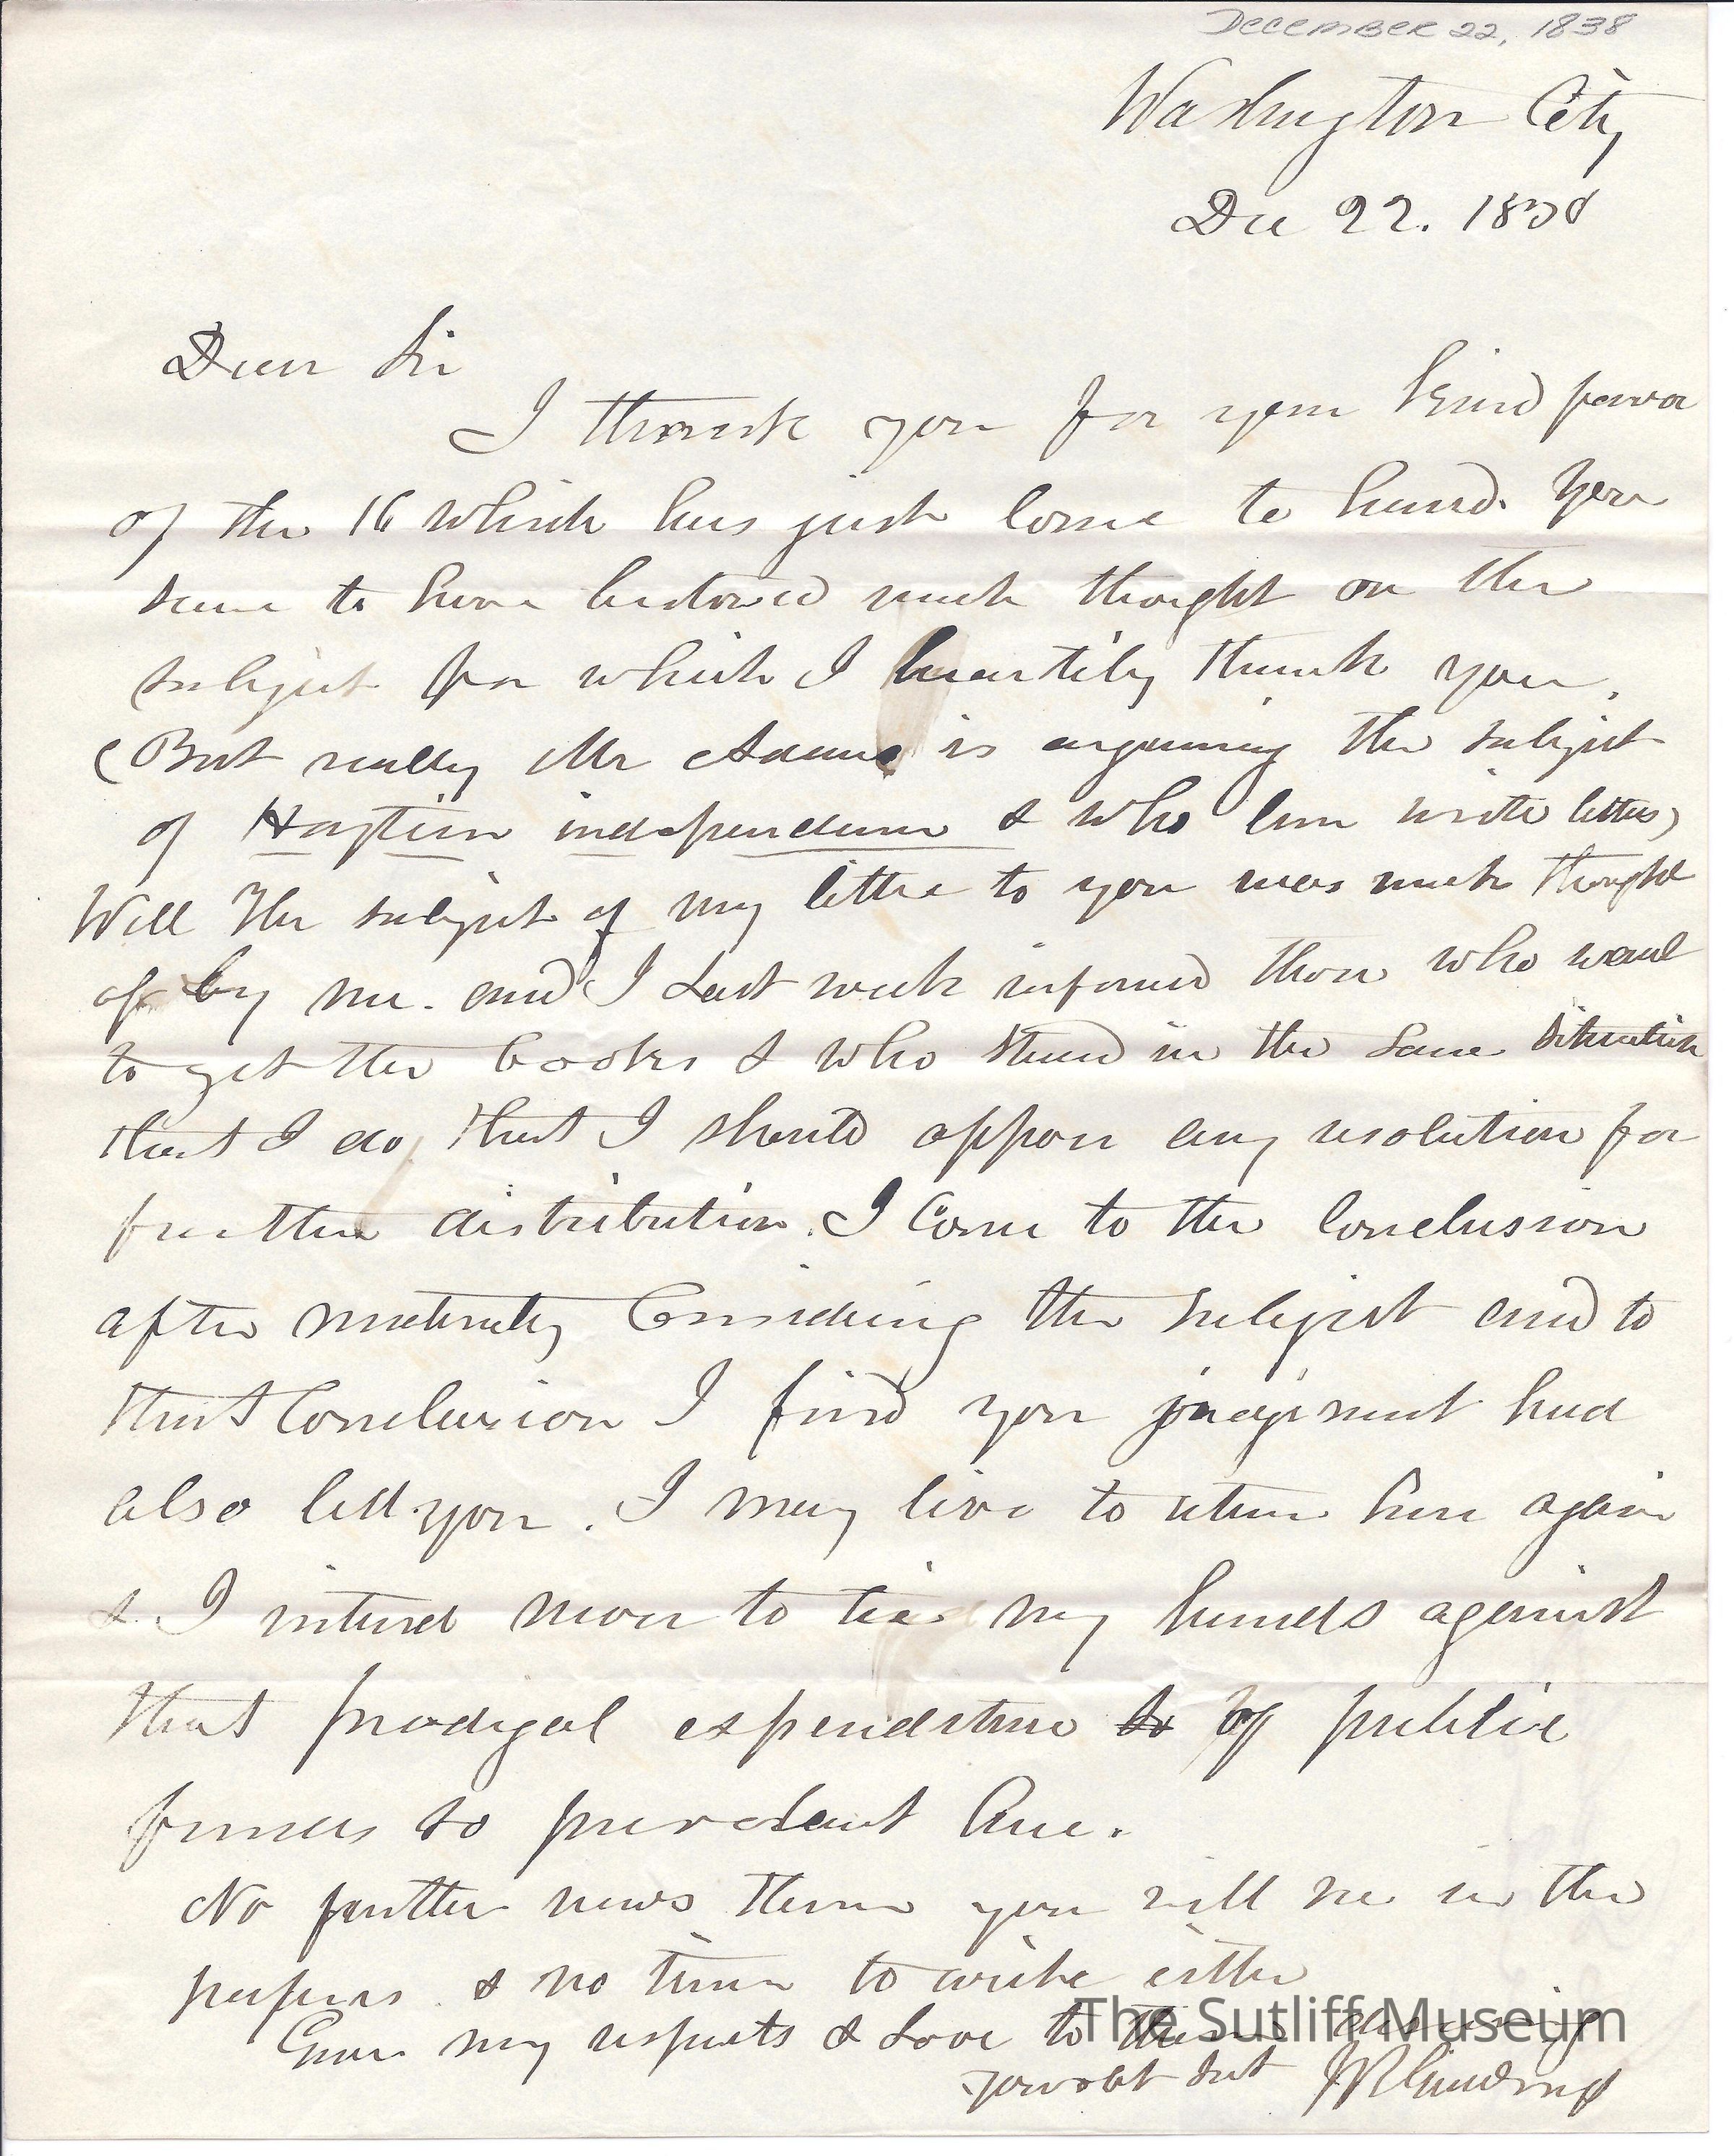 DECEMBER 22, 1838
Washington City
Dec 22. 1838
Dear Sir
I thank you for your kind favor
of the 16 which has just come to hand. You
seem to have bestowed much thought on the
subject for which I heartily thank you.
(But really Mr Adams is arguing the subject
of Haytien independence & who can write letters)
Well The subject of my letter to you was much thought
of by me. and I Last week informed those who want
to get the books & who stand in the same situation
that I do, that I should oppose any resolution for
further distribution. I Come to the Conclusion
after maturely Considering the subject and to
that Conclusion I find your judgment had
also led you. I may live to return here again
& I intend never to tie my hands against
that prodigal expenditure so of public
funds so prevalent here.
No further news than you will see in the
papers & no time to write either
Give my respects & Love to those
your obt Svt J R Giddings
The Sutliff Museum